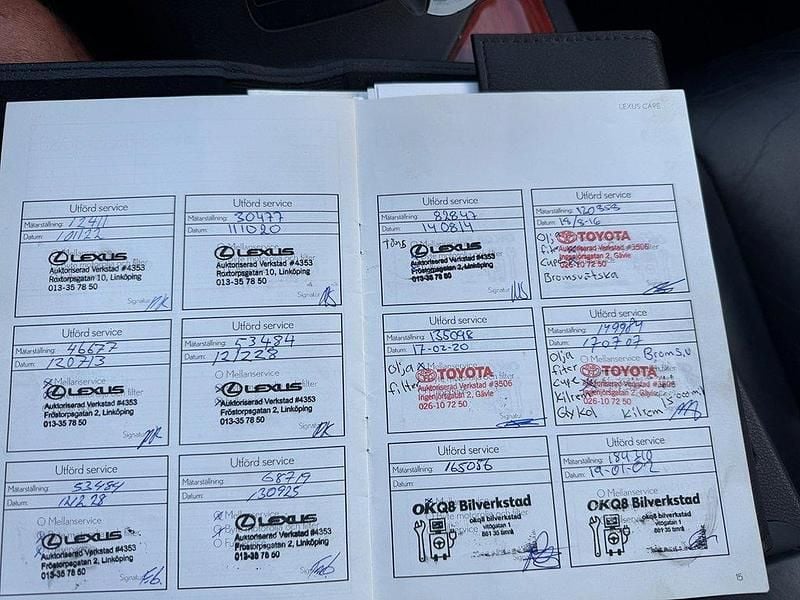 LEXUS CARE
Utförd service
Mätarställning: 12411
Datum: 101122
Mellanservice
LEXUS
Auktoriserad Verkstad #4353
Roxtorpsgatan 10, Linköping
013-35 78 50
Signatur
Utförd service
Mätarställning: 30477
Datum: 111020
Mellanservice
LEXUS
Auktoriserad Verkstad #4353
Roxtorpsgatan 10, Linköping
013-35 78 50
Signatur
Utförd service
Mätarställning: 46677
Datum: 120713
Mellanservice
LEXUS
Auktoriserad Verkstad #4353
Fröstorpsgatan 2, Linköping
013-35 78 50
Signatur
Utförd service
Mätarställning: 53484
Datum: 121228
Mellanservice
LEXUS
Auktoriserad Verkstad #4353
Fröstorpsgatan 2, Linköping
013-35 78 50
Signatur
Utförd service
Mätarställning: 53484
Datum: 121228
Mellanservice
LEXUS
Auktoriserad Verkstad #4353
Fröstorpsgatan 2, Linköping
013-35 78 50
Signatur
Utförd service
Mätarställning: 68719
Datum: 130925
Mellanservice
LEXUS
Auktoriserad Verkstad #4353
Fröstorpsgatan 2, Linköping
013-35 78 50
Signatur
Utförd service
Mätarställning: 82847
Datum: 140814
Mellanservice
LEXUS
Auktoriserad Verkstad #4353
Fröstorpsgatan 2, Linköping
013-35 78 50
Signatur
Utförd service
Mätarställning: 120358
Datum: 18/8-16
Olja
TOYOTA
Auktoriserad Verkstad #3506
Ingenjörsgatan 2, Gävle
026-10 72 50
Bromsvätska
Utförd service
Mätarställning: 135098
Datum: 17-02-20
Olja
Mellanservice
filter
TOYOTA
Auktoriserad Verkstad #3506
Ingenjörsgatan 2, Gävle
026-10 72 50
Signatur
Utförd service
Mätarställning: 149984
Datum: 170707
Olja
Mellanservice
Broms.v
filter
TOYOTA
Auktoriserad Verkstad #3506
Ingenjörsgatan 2, Gävle
026-10 72 50
Glykol
Utförd service
Mätarställning: 165056
Datum:
OKQ8 Bilverkstad
okq8 bilverkstad
vitögatan 1
861 35 timrå
Utförd service
Mätarställning: 184310
Datum: 19-01-02
OKQ8 Bilverkstad
okq8 bilverkstad
vitögatan 1
861 35 timrå
15